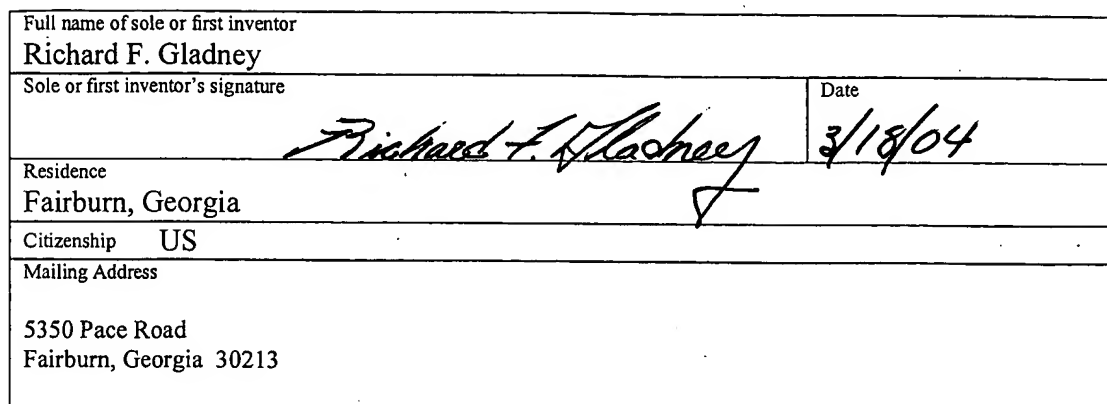 Full name of sole or first inventor
Richard F. Gladney
Sole or first inventor's signature
Date
Richard F. Gladney
3/18/04
Residence
Fairburn, Georgia
Citizenship US
Mailing Address
5350 Pace Road
Fairburn, Georgia 30213